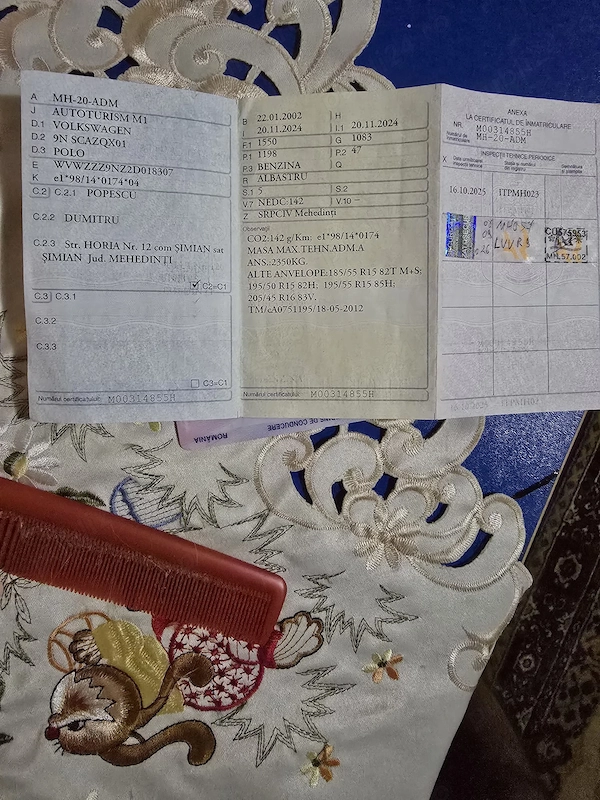 A MH-20-ADM
J AUTOTURISM M1
D.1 VOLKSWAGEN
D.2 9N SCAZQX01
D.3 POLO
E WVWZZZ9NZ2D018307
K e1*98/14*0174*04
C.2 C.2.1 POPESCU
C.2.2 DUMITRU
C.2.3 Str. HORIA Nr. 12 com ȘIMIAN sat
ȘIMIAN Jud. MEHEDINȚI
C2=C1
C.3 C.3.1
C.3.2
C.3.3
C3=C1
Numărul certificatului: M00314855H
B 22.01.2002 H
I 20.11.2024 I.1 20.11.2024
F.1 1550 G 1083
P.1 1198 P.2 47
P.3 BENZINA Q
R ALBASTRU
S.1 5 S.2
V.7 NEDC:142 V.10 –
Z SRPCIV Mehedinți
Observații
CO2:142 g/Km; e1*98/14*0174
MASA MAX.TEHN.ADM.A
ANS.:2350KG.
ALTE ANVELOPE:185/55 R15 82T M+S;
195/50 R15 82H; 195/55 R15 85H;
205/45 R16 83V.
TM/cA0751195/18-05-2012
Numărul certificatului: M00314855H
ANEXA
LA CERTIFICATUL DE ÎNMATRICULARE
NR. M00314855H
Numărul de înmatriculare MH-20-ADM
INSPECȚII TEHNICE PERIODICE
X
16.10.2025 ITPMH023
16.10.2025 ITPMH01
ROMÂNIA
DE CONDUCERE